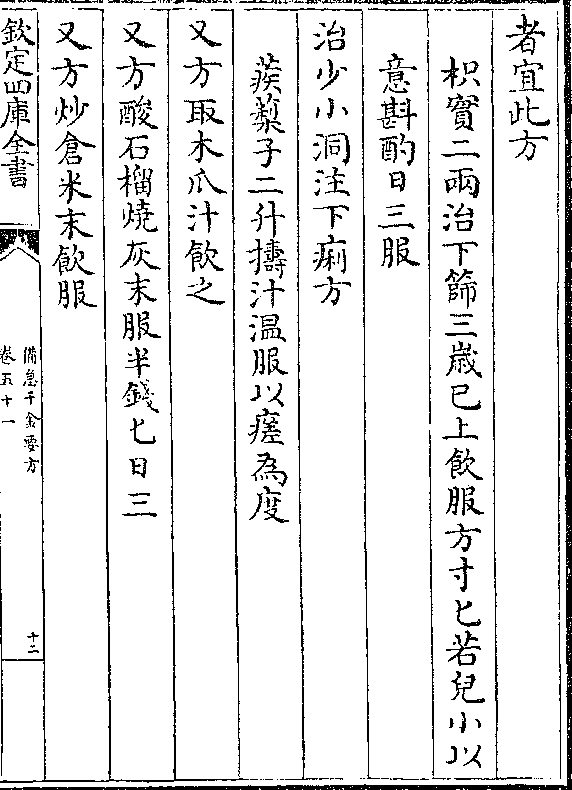 者宜此方
枳實二兩治下篩三歲已上飲服方寸匕若兒小以
意斟酌日三服
治少小洞注下痢方
蒺藜子二升擣汁温服以瘥為度
又方取木瓜汁飲之
又方酸石榴燒灰末服半錢匕日三
又方炒倉米末飲服
欽定四庫全書
備急千金要方
卷五十一
十二